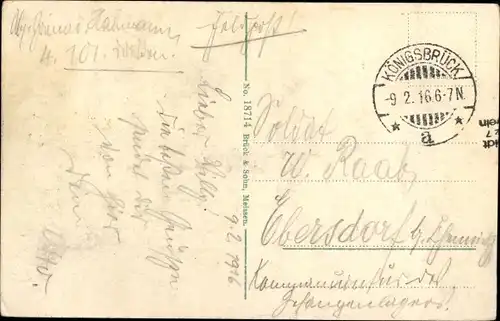 Feldpost!
4. 101.
Lieber Willy!
die besten Grüße
sendet dir
von hier
9.2.1916
No. 18714 Brück & Sohn, Meissen.
KÖNIGSBRÜCK
-9.2.16.6-7N.
* a *
Soldat
W. Raab,
Ebersdorf b. Chemnitz
Kommandantur des
Gefangenenlagers!